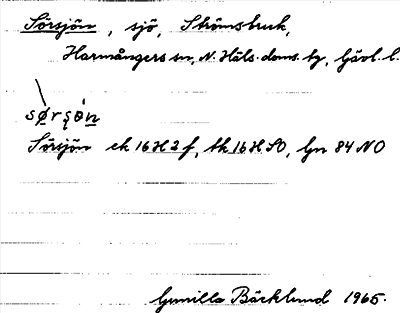 Sörsjön, sjö, Strömsbruk,
Harmångers sn, N. Häls. doms. tg, Gävl. l.
sørşøn
Sörsjön ek 16H2f, tk 16H SO, Gn 84 NO
Gunilla Bäcklund 1965.